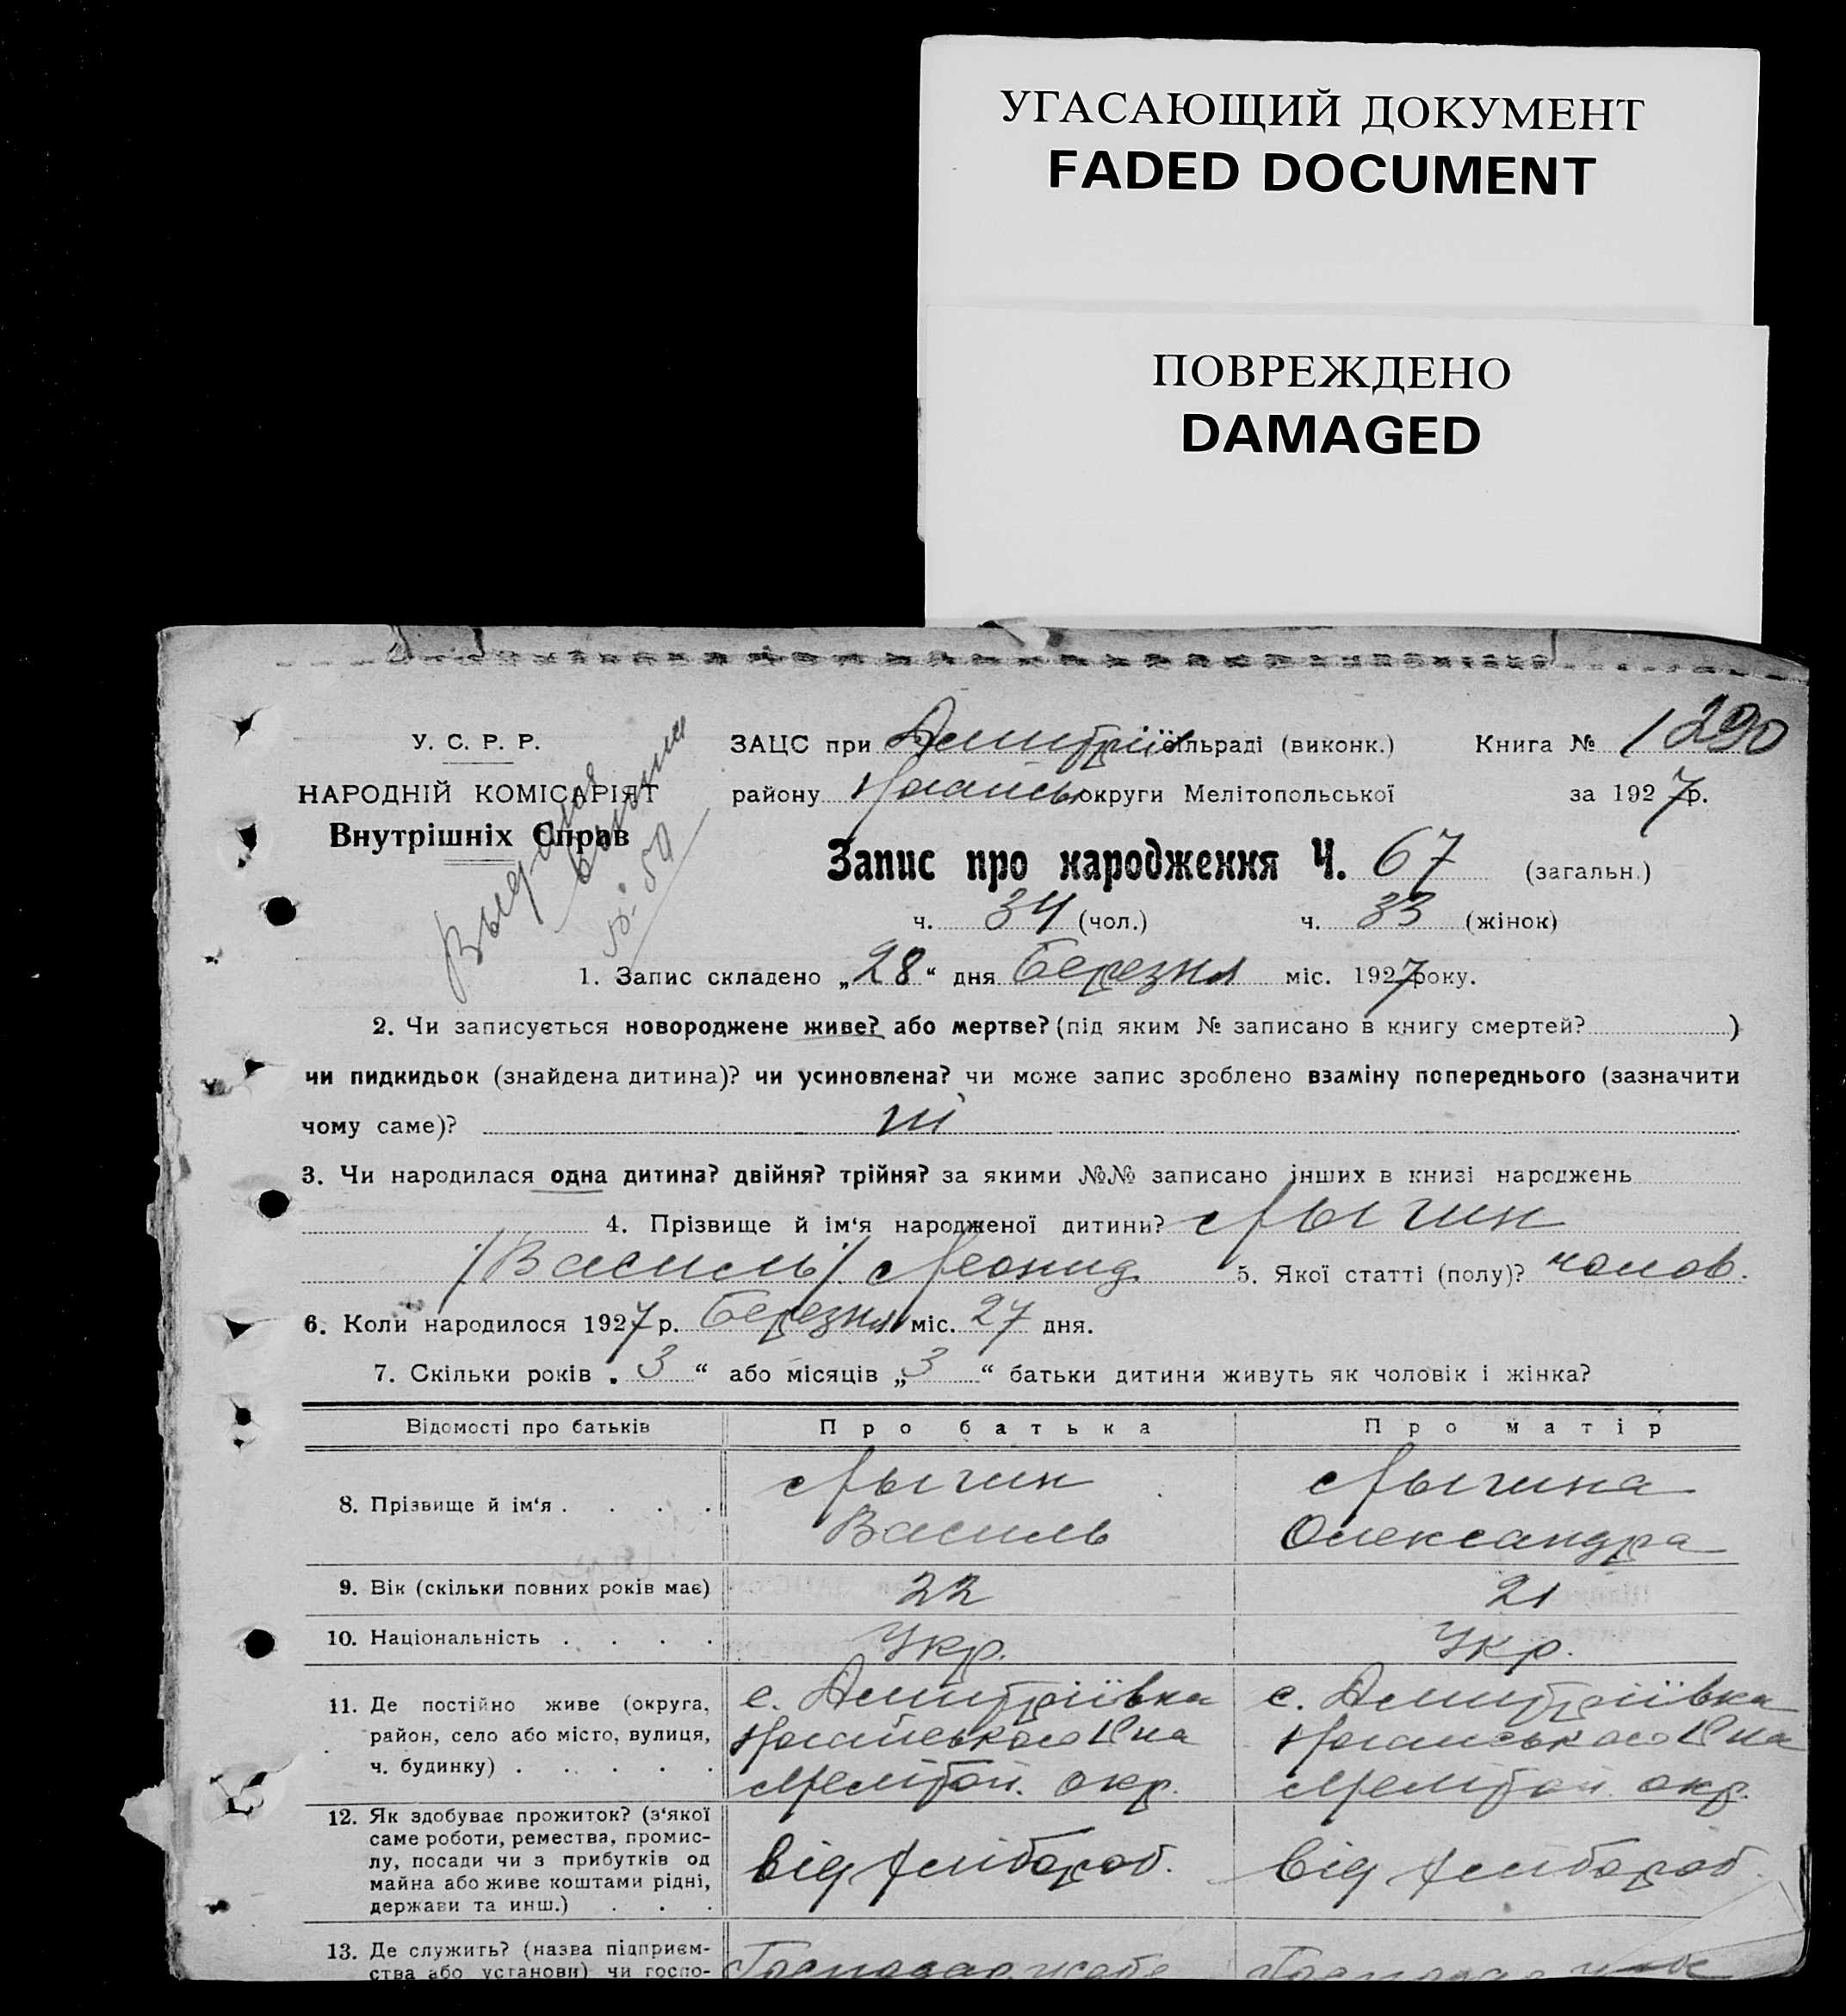 УГАСАЮЩИЙ ДОКУМЕНТ
FADED DOCUMENT
ПОВРЕЖДЕНО
DAMAGED
У. С. Р. Р.
НАРОДНІЙ КОМІСАРІЯТ
Внутрішніх Справ
ЗАЦС при Дмитріїв сільраді (виконк.) Книга № 1 290
району Ногайськ округи Мелітопольської за 1927 р.
Запис про народження Ч. 67 (загальн.)
ч. 34 (чол.) ч. 33 (жінок)
1. Запис складено „28“ дня Березня міс. 1927 року.
2. Чи записується новороджене живе? або мертве? (під яким № записано в книгу смертей? )
чи пидкидьок (знайдена дитина)? чи усиновлена? чи може запис зроблено взаміну попереднього (зазначити
чому саме)? ні
3. Чи народилася одна дитина? двійня? трійня? за якими №№ записано інших в книзі народжень
4. Прізвище й ім‘я народженої дитини? Лычин
/Василь/ Леонид 5. Якої статті (полу)? чолов.
6. Коли народилося 1927 р. Березня міс. 27 дня.
7. Скільки років „3“ або місяців „3“ батьки дитини живуть як чоловік і жінка?
Відомості про батьків Про батька Про матір
8. Прізвище й ім‘я . . . . Лычин Василь Лычина Олександра
9. Вік (скільки повних років має) 22 21
10. Національність . . . . Укр. Укр.
11. Де постійно живе (округа, с. Дмитріївка с. Дмитріївка
район, село або місто, вулиця, Ногайського Р на Ногайського Р на
ч. будинку) . . . . . Мелітоп. окр. Мелітоп. окр.
12. Як здобуває прожиток? (з‘якої
саме роботи, ремества, промис-
лу, посади чи з прибутків од від хлібороб. від хлібороб.
майна або живе коштами рідні,
держави та инш.) . . .
13. Де служить? (назва підприєм-
ства або установи) чи госпо-